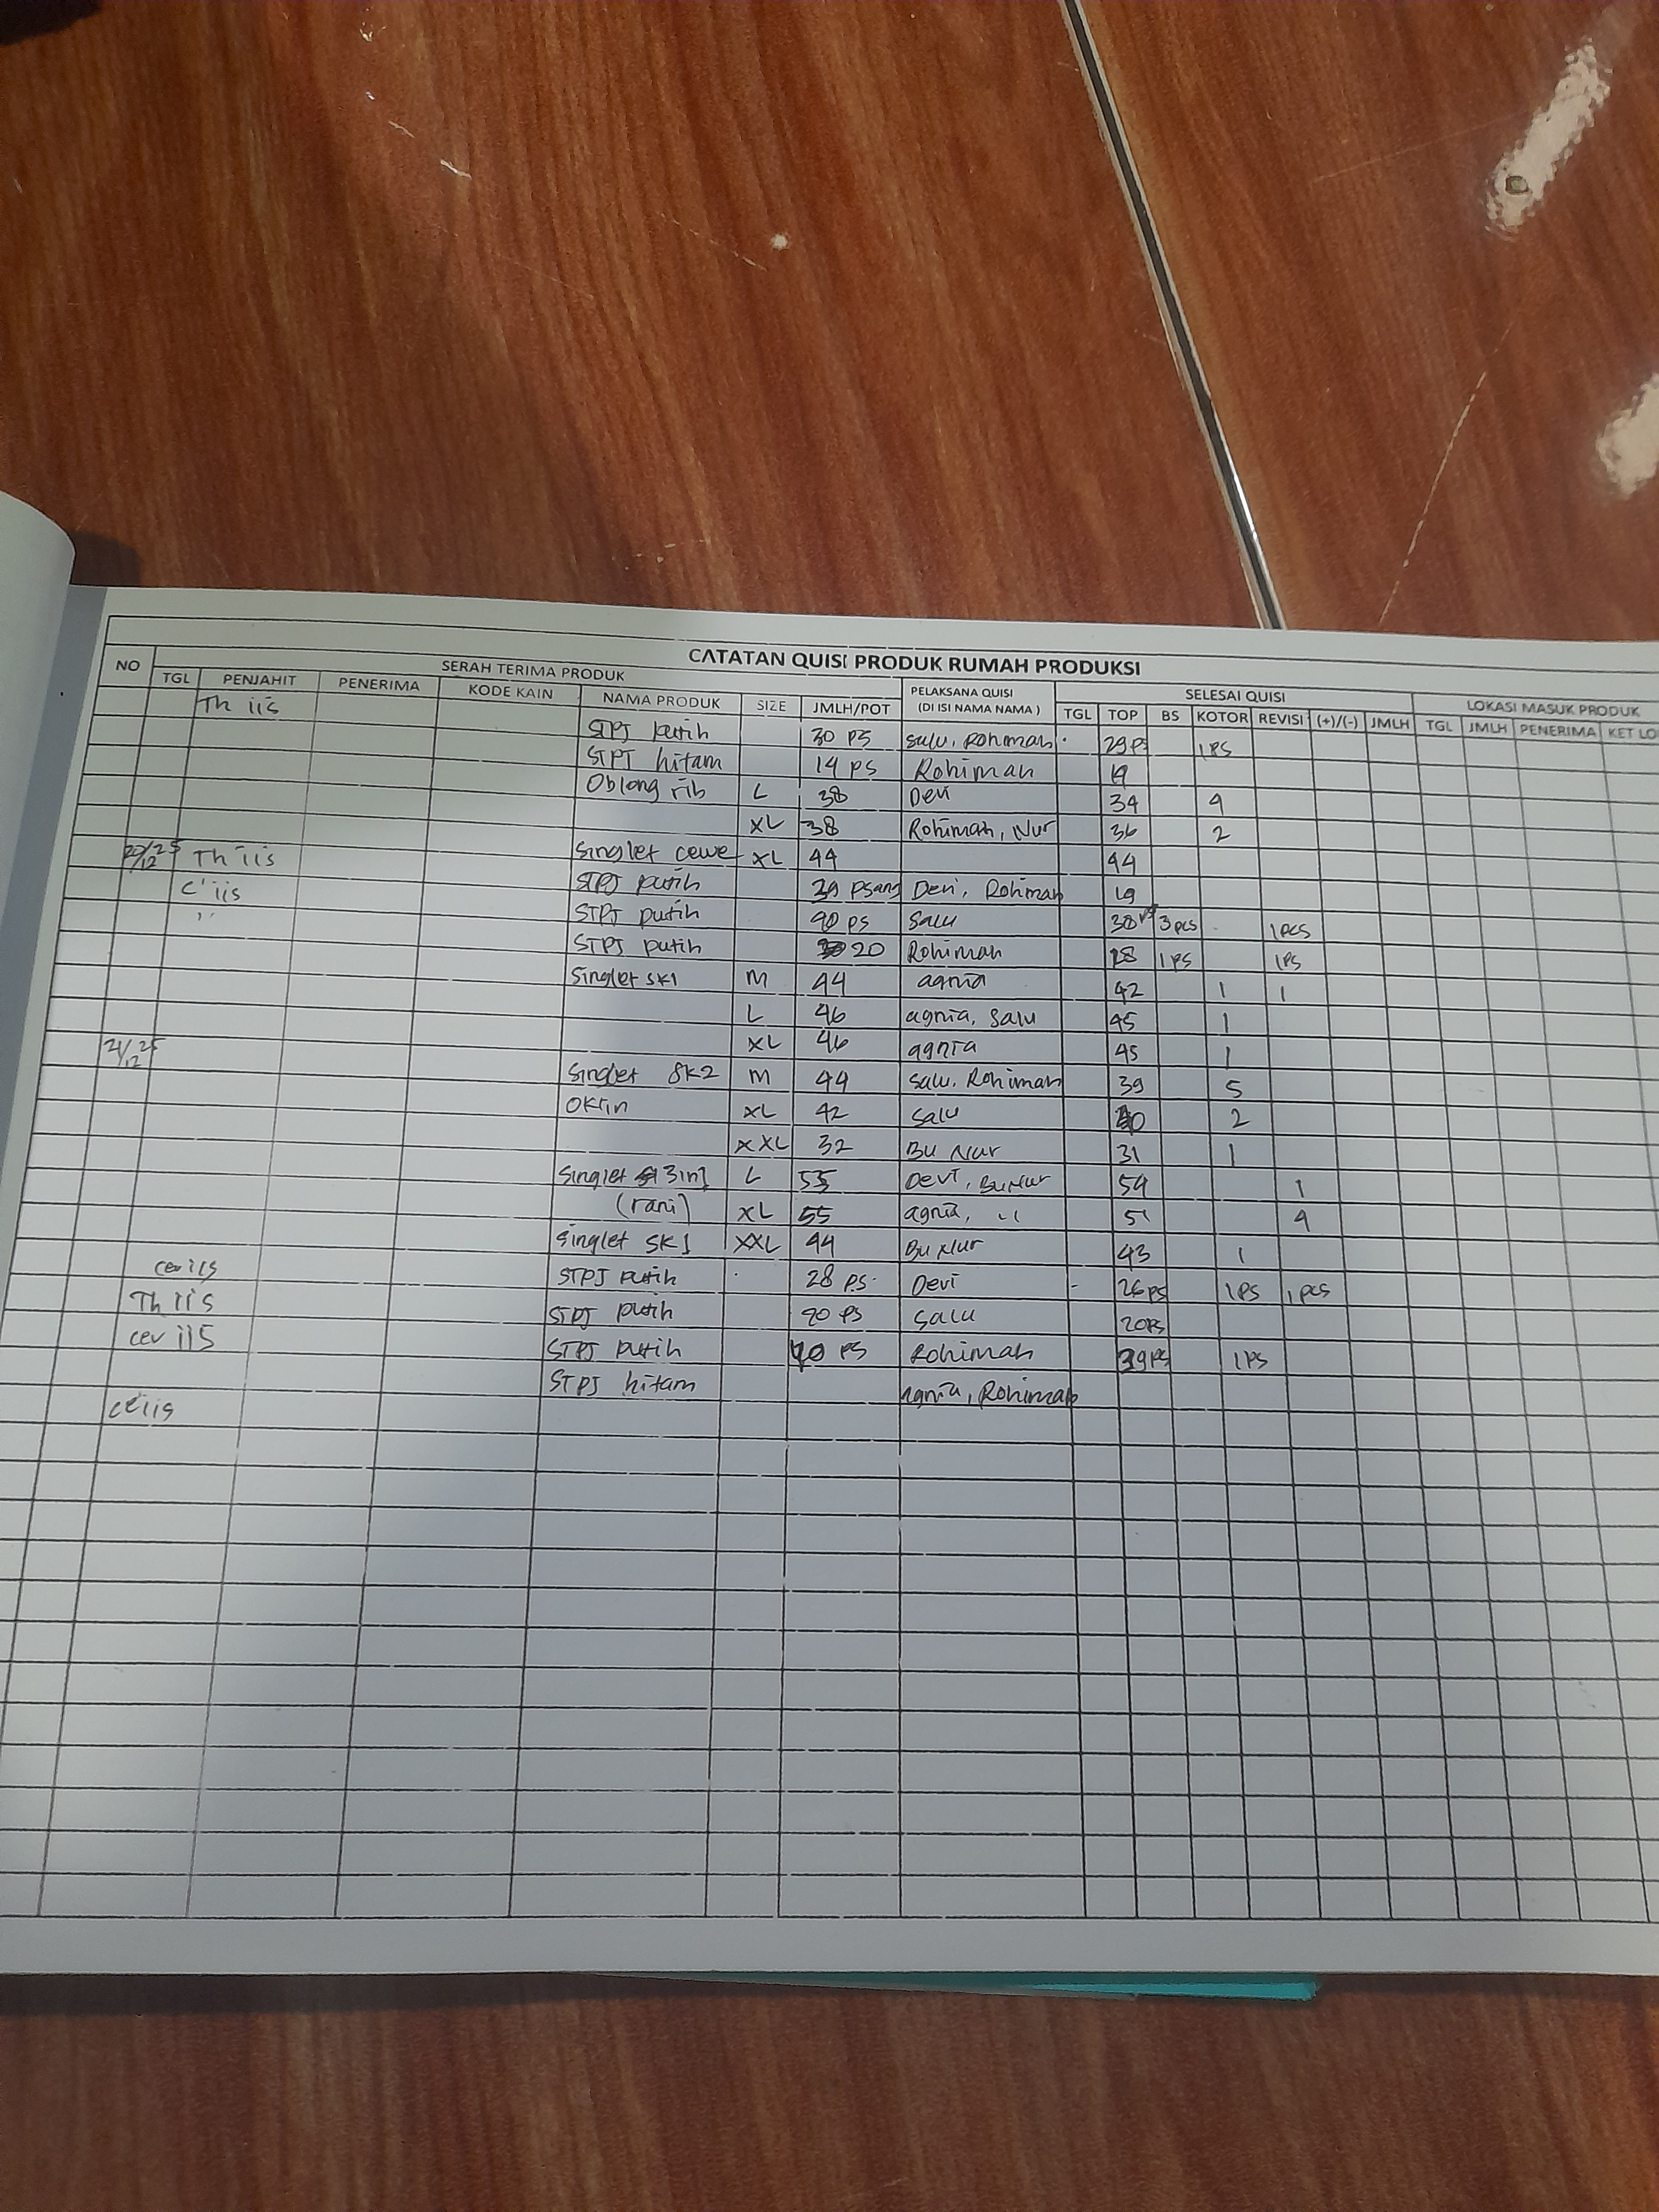 CATATAN QUISI PRODUK RUMAH PRODUKSI
NO SERAH TERIMA PRODUK PELAKSANA QUISI (DI ISI NAMA NAMA ) SELESAI QUISI LOKASI MASUK PRODUK
TGL PENJAHIT PENERIMA KODE KAIN NAMA PRODUK SIZE JMLH/POT TGL TOP BS KOTOR REVISI (+)/(-) JMLH TGL JMLH PENERIMA KET LO
Th iis STPJ putih 30 PS salu, Rohimah 29 PS 1 PS
STPJ hitam 14 PS Rohimah
Oblong rib L 38 Devi 34 4
XL 38 Rohimah, Nur 36 2
20/12 25 Th iis Singlet cewe XL 44 44
C'iis STPJ putih Devi, Rohimah 19
" STPJ putih 40 ps Salu 3 pcs 1 pcs
STPJ putih 20 Rohimah 18 1 PS 1 PS
Singlet SK1 M 44 agnia 42 1 1
L 46 agnia, Salu 45 1
XL 46 agnia 45 1
21/12 25 Singlet SK2 M 44 salu, Rohimah 39 5
Oktin XL 42 Salu 40 2
XXL 32 Bu Nur 31 1
Singlet 3in1 L 55 Devi, Bu Nur 54 1
(rani) XL 55 agnia, " 51 4
Singlet SK1 XXL 44 Bu Nur 43 1
ceu iis STPJ putih 28 PS Devi 26 ps 1 PS 1 pcs
Th iis STPJ putih 20 PS Salu 20 PS
ceu iis STPJ putih 40 PS Rohimah 39 PS 1 PS
STPJ hitam agnia, Rohimah
ce iis